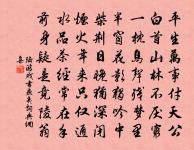 平生萬事付天公
白首山林不厭窮
一枕鳥聲殘夢里
半窗花影獨吟中
柴荊日晚猶深閉
煙火年來只僅通
水品茶經常在手
前身疑是竟陵翁
陸游戏書燕几